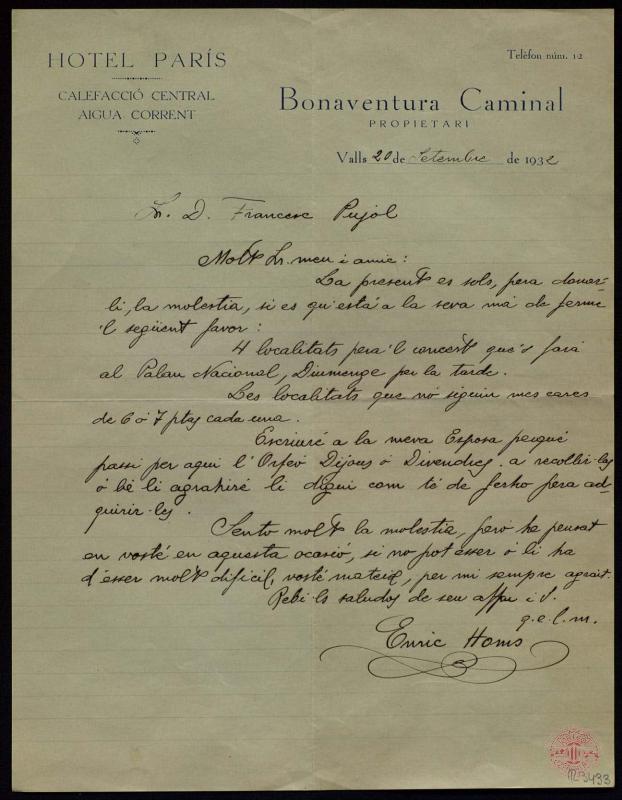 HOTEL PARÍS
CALEFACCIÓ CENTRAL
AIGUA CORRENT
Telèfon núm. 12
Bonaventura Caminal
PROPIETARI
Valls 20 de Setembre de 1932
Sr. D. Francesc Pujol
Molt Sr. meu i amic:
La present es sols, pera donar-
li, la molestia, si es qu'está a la seva má de ferme
'l següent favor:
4 localitats pera 'l concèrt que's fará
al Palau Nacional, Diumenge per la tarde.
Les localitats que nó siguin mes cares
de 6 ó 7 ptas cada una.
Escriuré a la meva Esposa perqué
passi per aqui l'Orfeó Dijous ó Divendres. a recollir-les
ó bé li agrahiré li digui com té de ferho pera ad-
quirir-les.
Sento molt la molestia, pero he pensat
en vosté en aquesta ocasió, si no pot ésser ó li ha
d'ésser molt dificil, vosté mateix, per mi sempre agrait.
Rebi-ls saludos de seu affm i S.
q.e.l.m.
Enric Homs
M 3433